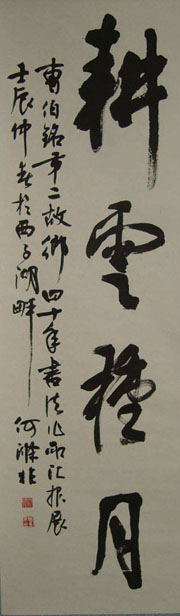 耕雲種月
曹伯铭第二故鄉四十年書法作品汇报展
壬辰仲春於西子湖畔 何滌非